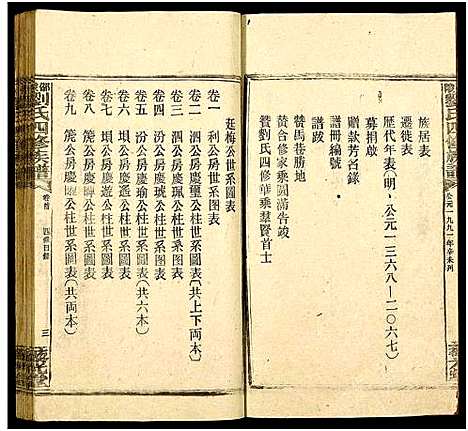 族居表
遷徙表
歷代年表(明,公元一三六八—二〇六七)
募捐啟
贈款芳名錄
譜跋
譜冊編號
贊馬巷勝地
敬合修家乘圓滿告竣
贊劉氏四修華乘羣賢首士
廷梅公世系图表
卷一 利公房世系图表
卷二 汾公房慶璽公柱世系圖表(共上下两本)
卷三 汾公房慶璣公柱世系圖表
卷四 汾公房慶瑤公柱世系圖表
卷五 汾公房慶瑜公柱世系圖表(共六本)
卷六 垻公房慶遙公柱世系圖表
卷七 垻公房慶
公柱世系圖表
卷八 箎公房慶
公柱世系圖表
卷九 箎公房慶琭公柱世系圖表(共两本)
劉氏四修族譜
卷首
四修目錄
三